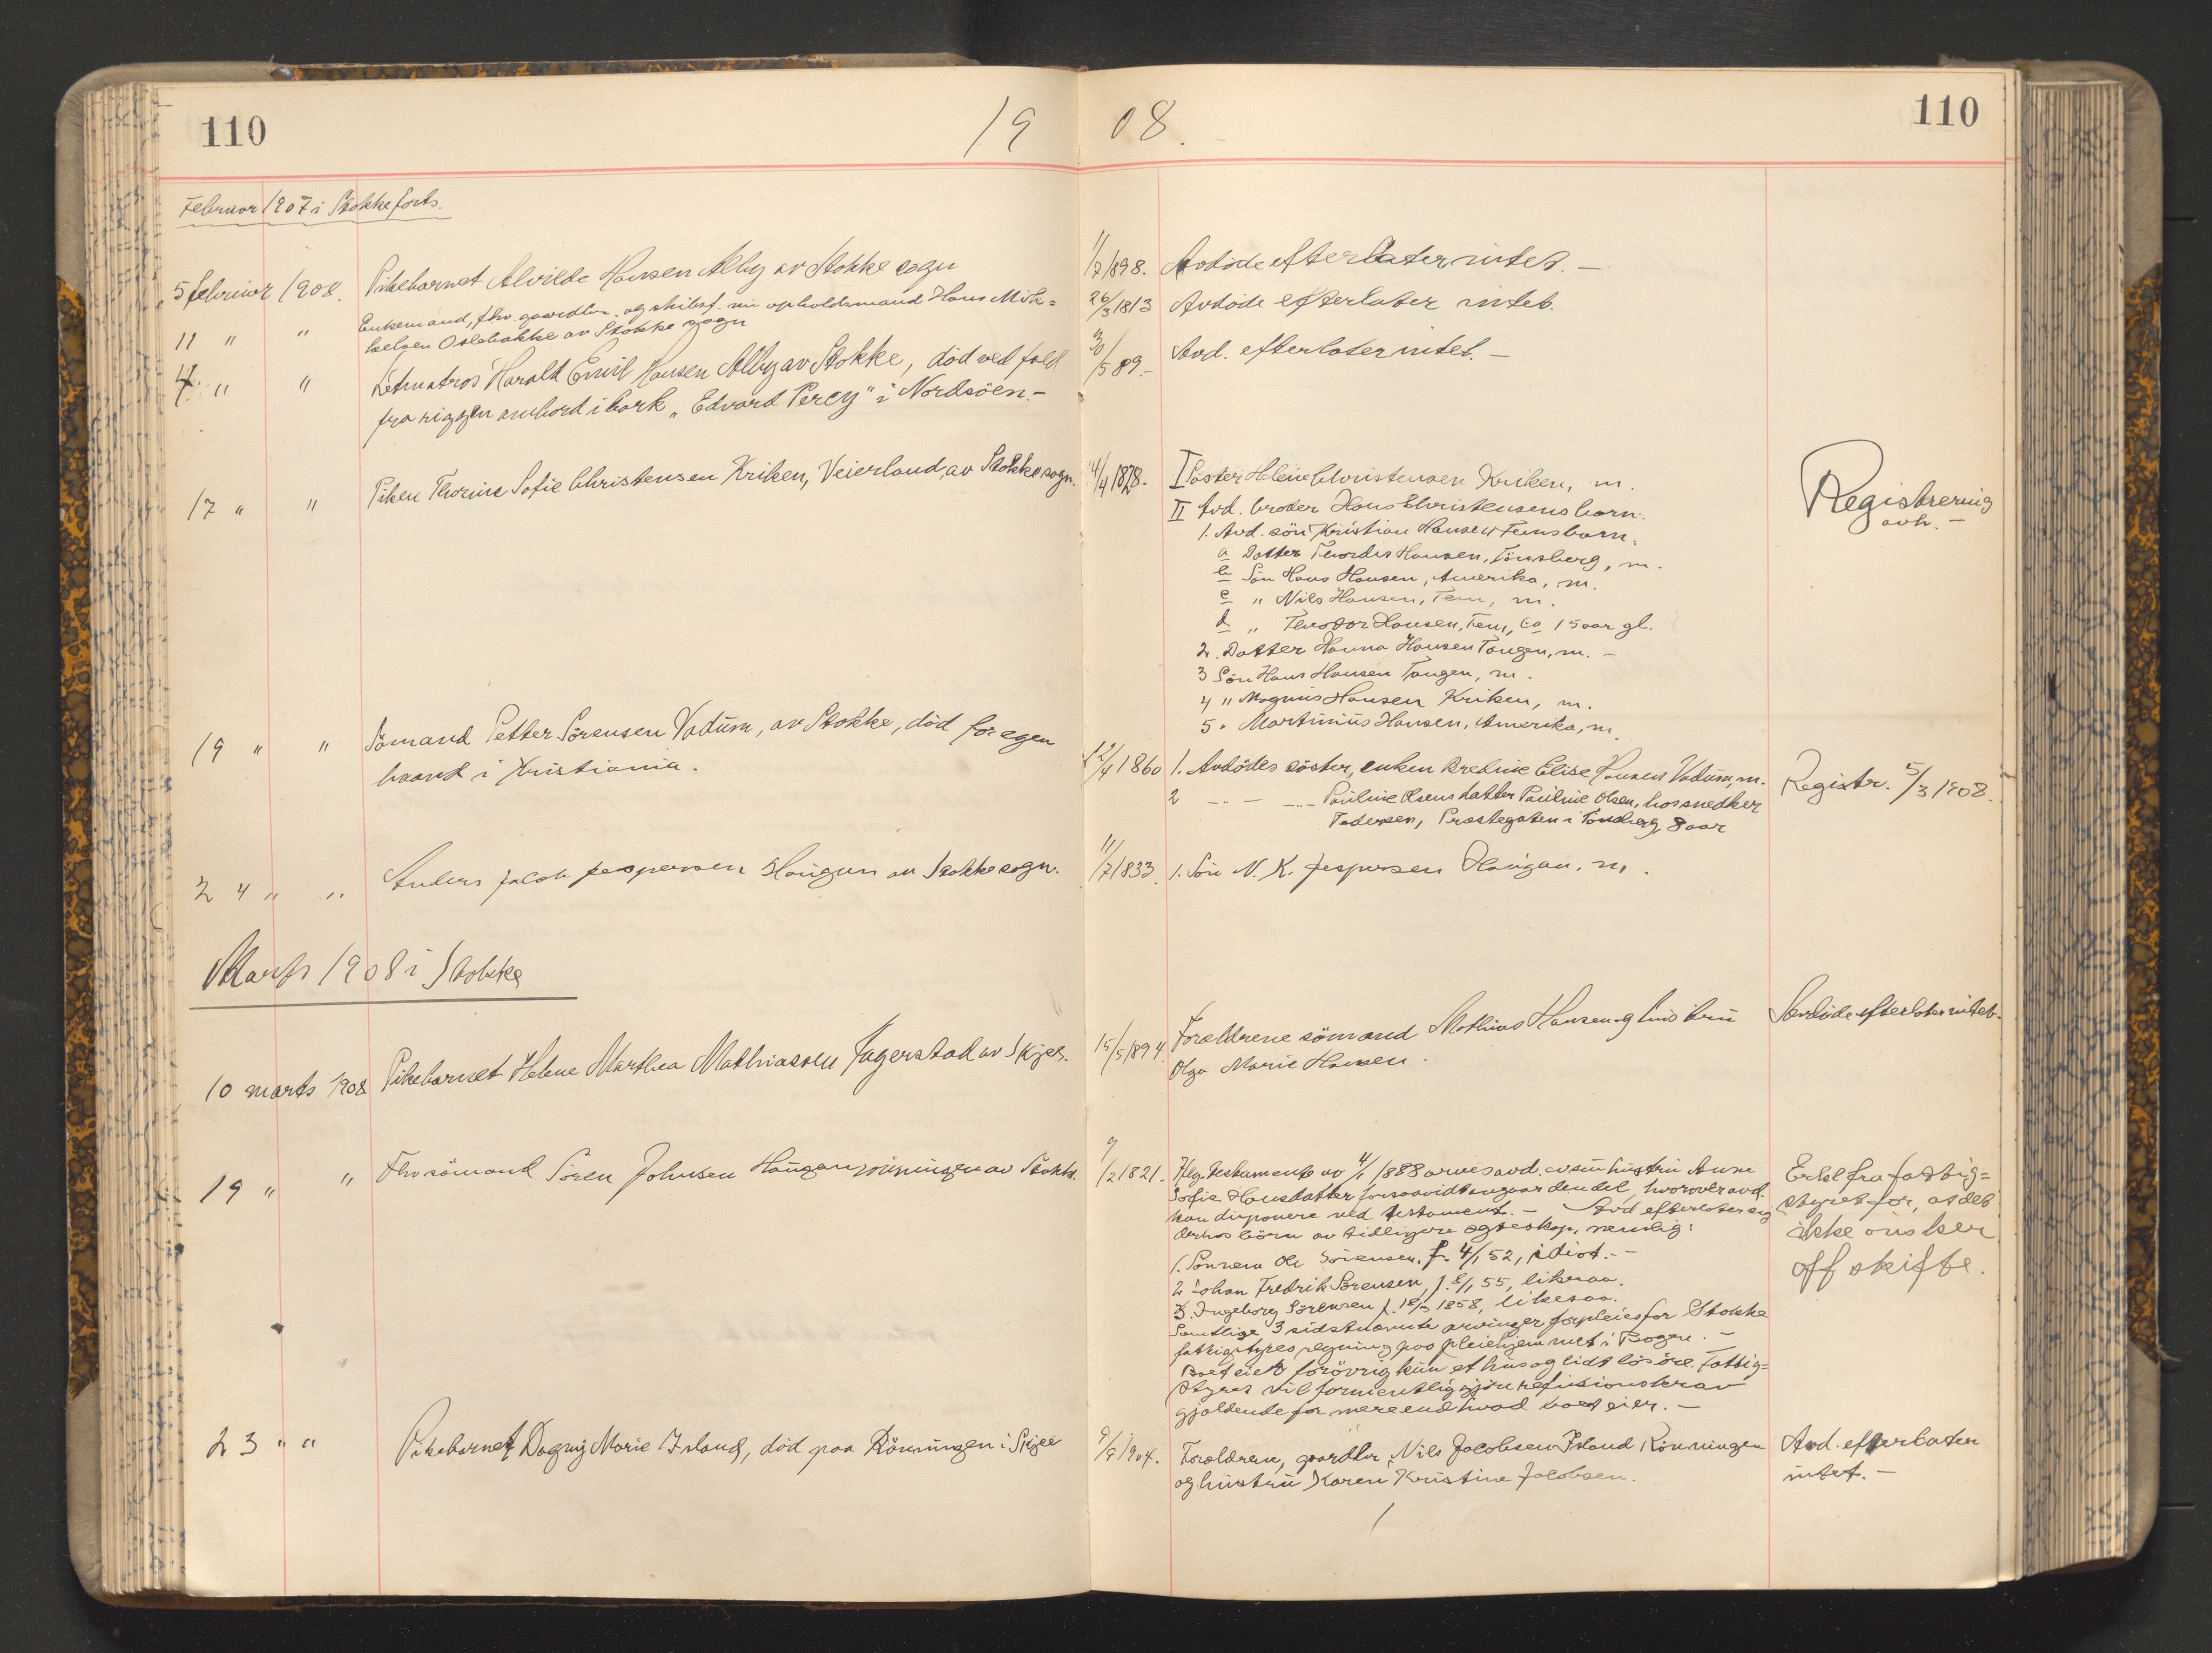 110
19 08.
110
Februar 1907 i Stokke forts.
5 februar 1908. Pikebarnet Alvilde Hansen Alby av Stokke sogn
11/7 1898. Avdöde efterlater intet. —
11 " " Enkemand, fhv. gaardbr. og skibsf. nu opholdsmand Hans Mik=
kelsen Oslebakke av Stokke sogn
26/3 1813 Avdöde efterlater intet.
4 " " Letmatros Harald Emil Hansen Alby av Stokke, död ved fald
fra riggen ombord i bark „Edvard Percy" i Nordsöen. —
30/5 89. — Avd. efterlater intet. —
17 " " Piken Thorine Sofie Christensen Kriken, Veierland, av Stokke sogn.
14/4 1828. I Söster Helene Christensen Kriken, m.
II Avd. broder Hans Christensens barn:
1. Avd. sön Kristian Hansen Tems barn:
a Datter Thordis Hansen, Tönsberg, m.
b Sön Hans Hansen, Amerika, m.
c " Nils Hansen, Tem, m.
d " Theodor Hansen, Tem, ca 15 aar gl.
2. Datter Hanna Hansen Tangen, m. —
3 Sön Hans Hansen Tangen, m.
4 " Magnus Hansen Kriken, m.
5 " Martinius Hansen, Amerika, m.
Registrering
avh. —
19 " " Sömand Petter Sörensen Vadum, av Stokke, död for egen
haand i Kristiania.
12/4 1860 1. Avdödes söster, enken Bredine Elise Hansen Vadum, m.
2 — " — — " — Pauline Olsens datter Pauline Olsen, hos snedker
Pedersen, Prestegaten i Tönsberg, 8 aar
Registr. 5/3 1908.
24 " " Anders Jakob Jespersen Haugan av Stokke sogn.
11/7 1833. 1. Sön N. K. Jespersen Haugan, m.
Marts 1908 i Stokke
10 marts 1908 Pikebarnet Helene Marthea Mathiassen Fagerstad av Skjee.
15/5 1894. Forældrene sömand Mathias Hansen og hustru
Olga Marie Hansen.
Avdöde efterlater intet.
19 " " Fhv sömand Sören Johnsen Haugan av Stokke.
9/2 1821. Iflg. testamente av 4/1 1888 arves avd. av sin hustru Anne
Sofie Hansdatter forsaavidt angaar den del, hvorover avd.
kan disponere ved testament. — Avd efterlater sig
derhos börn av tidligere egteskap, nemlig:
1. Sönnen Ole Sörensen, f. 4/1 52, idiot. —
2 Johan Fredrik Sörensen, f. 55, likesaa.
3. Ingeborg Sörensen f. 1858, likesaa.
Samtlige 3 sidstnævnte arvinger forpleies for Stokke
fattigstyres regning paa pleiehjemmet i Bogen. —
Boet eier forövrig kun et hus og lidt lösöre. Fattig=
styret vil formentlig gjöre refusionskrav
gjældende for mere end hvad boet eier. —
Erkl fra fattig=
styret for, at det
ikke önsker
off skifte.
23 " " Pikebarnet Dagny Marie Island, död paa Rönningen i Skjee
9/8 1904. Forældrene, gaardbr. Nils Jacobsen Island Rönningen
og hustru Karen Kristine Jacobsen.
Avd. efterlater
intet. —